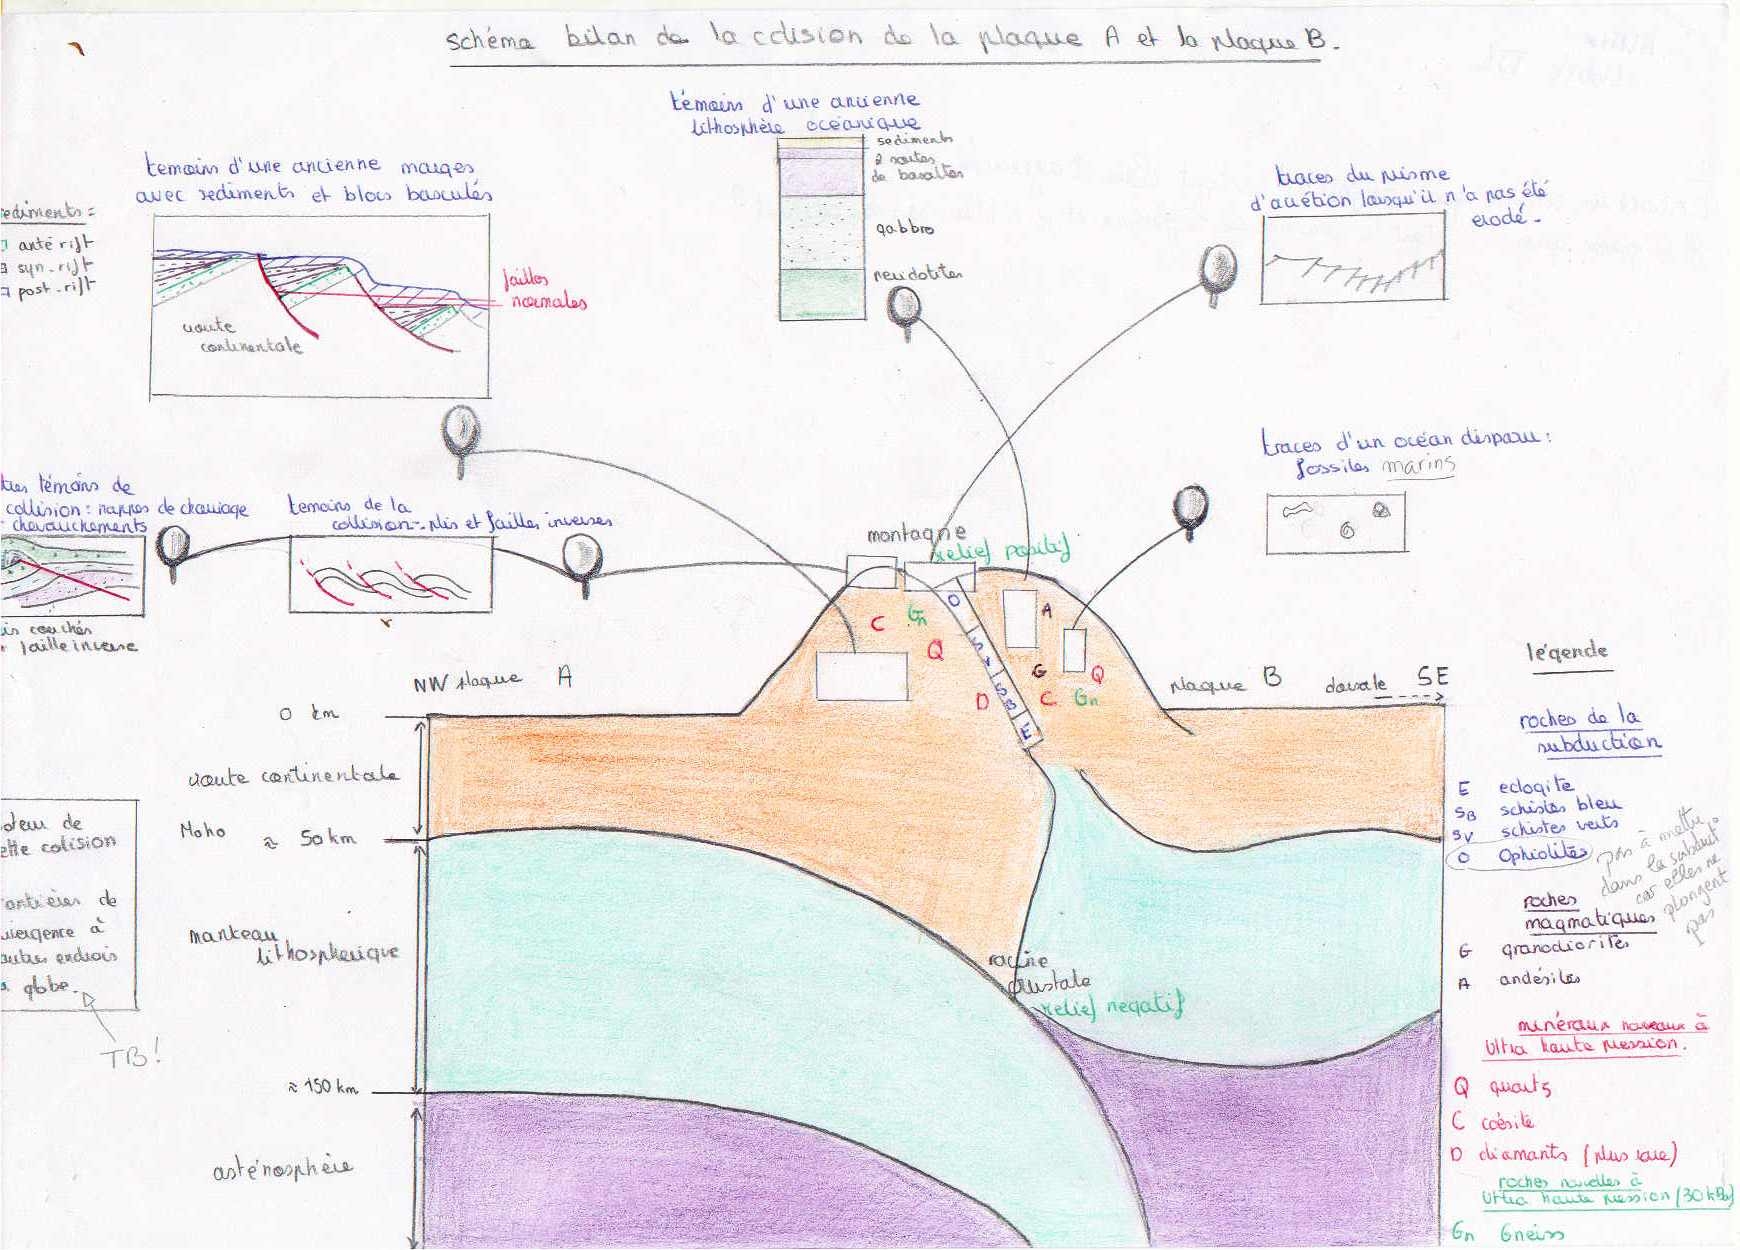 schéma bilan de la colision de la plaque A et la plaque B.
témoins d'une ancienne
lithosphère océanique
sediments
2 soutes
de basaltes
gabbro
peridotites
temoins d'une ancienne marges
avec sediments et blocs basculés
ediments =
anté rift
syn-rift
post-rift
failles
normales
croute
continentale
traces du prisme
d'acrétion lorsqu'il n'a pas été
erodé.
traces d'un océan disparu :
fossiles marins
témoins de
collision : nappes de charriage
chevauchements
couchés
faille inverse
temoins de la
collision - plis et failles inverses
montagne
relief positif
C Gn Q D
O SV SB E
A G C Q Gn
NW plaque A
plaque B dorsale SE
0 km
croute continentale
Moho
≈ 50 km
manteau
lithospherique
≈ 150 km
asténosphère
racine
crustale
relief negatif
oteur de
ette colision
de
ergence à
endrois
globe.
TB!
légende
roches de la
subduction
E eclogite
SB schistes bleu
SV schistes verts
O Ophiolites
pas à mettre
dans la subduct°
car elles ne
plongent
pas
roches
magmatiques
G granodiorites
A andésites
minéraux nouveaux à
Ultra haute pression.
Q quartz
C coésite
D diamants (plus rare)
roches nouvelles à
Ultra haute pression (30 kBa)
Gn Gneiss